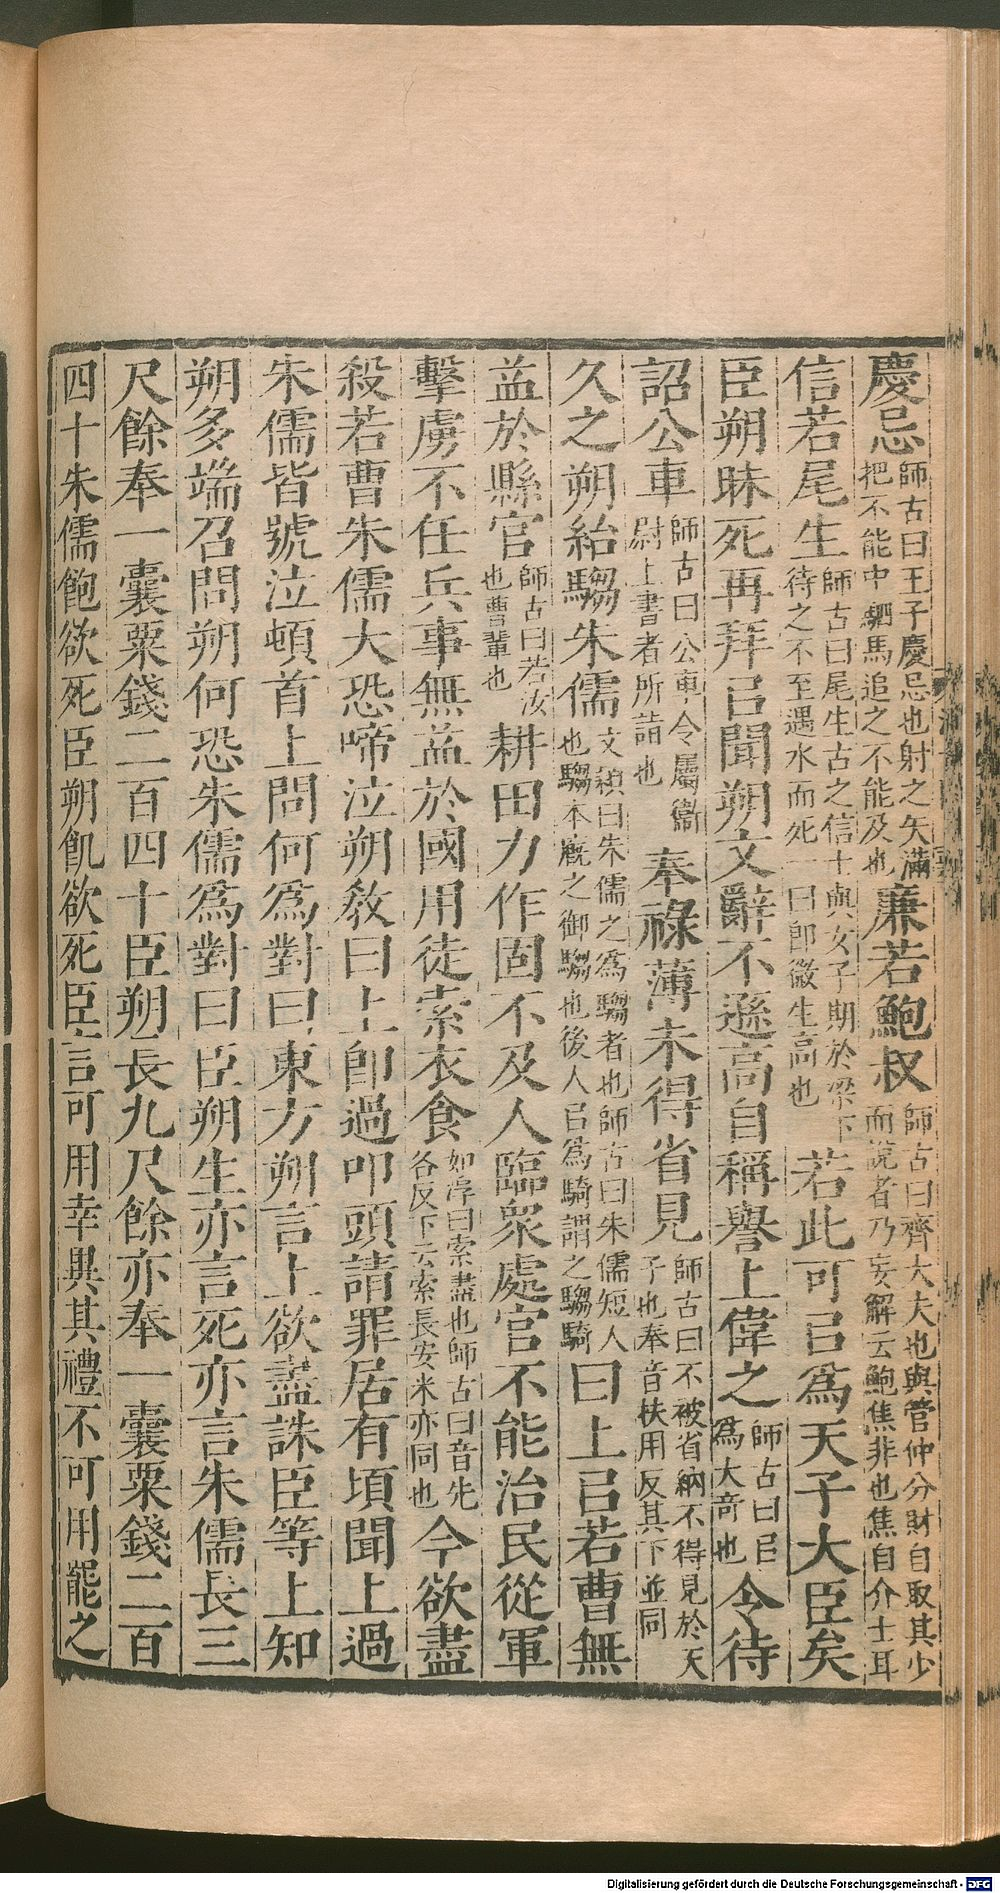 慶忌師古曰王子慶忌也射之矢滿把不能中駟馬追之不能及也廉若鮑叔師古曰齊大夫也與管仲分財自取其少而說者乃妄解云鮑焦非也焦自介士耳
信若尾生師古曰尾生古之信士與女子期於梁下待之不至遇水而死一曰卽微生高也若此可㠯爲天子大臣矣
臣朔昧死再拜㠯聞朔文辭不遜高自稱譽上偉之師古曰㠯爲大奇也令待
詔公車師古曰公車令屬衞尉上書者所詣也奉祿薄未得省見師古曰不被省納不得見於天子也奉音扶用反其下並同
久之朔紿騶朱儒文穎曰朱儒之爲騶者也師古曰朱儒短人也騶本廐之御騶也後人㠯爲騎謂之騶騎曰上㠯若曹無
益於縣官師古曰若汝也曹輩也耕田力作固不及人臨衆處官不能治民從軍
擊虜不任兵事無益於國用徒索衣食如淳曰索盡也師古曰音先各反下云索長安米亦同也今欲盡
殺若曹朱儒大恐啼泣朔敎曰上卽過叩頭請罪居有頃聞上過
朱儒皆號泣頓首上問何爲對曰東方朔言上欲盡誅臣等上知
朔多端召問朔何恐朱儒爲對曰臣朔生亦言死亦言朱儒長三
尺餘奉一囊粟錢二百四十臣朔長九尺餘亦奉一囊粟錢二百
四十朱儒飽欲死臣朔飢欲死臣言可用幸異其禮不可用罷之
Digitalisierung gefördert durch die Deutsche Forschungsgemeinschaft - DFG